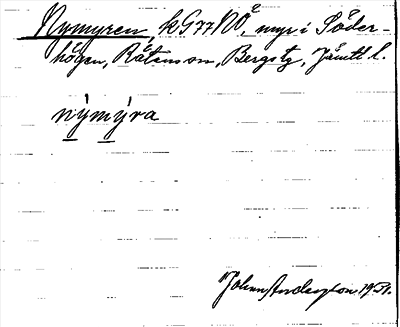 Nymyren, k G 77 NÖ, myr i Söder-
högen, Rätans sn, Bergs tg, Jämtl l.
nymyra
Johan Anderzson 1931.